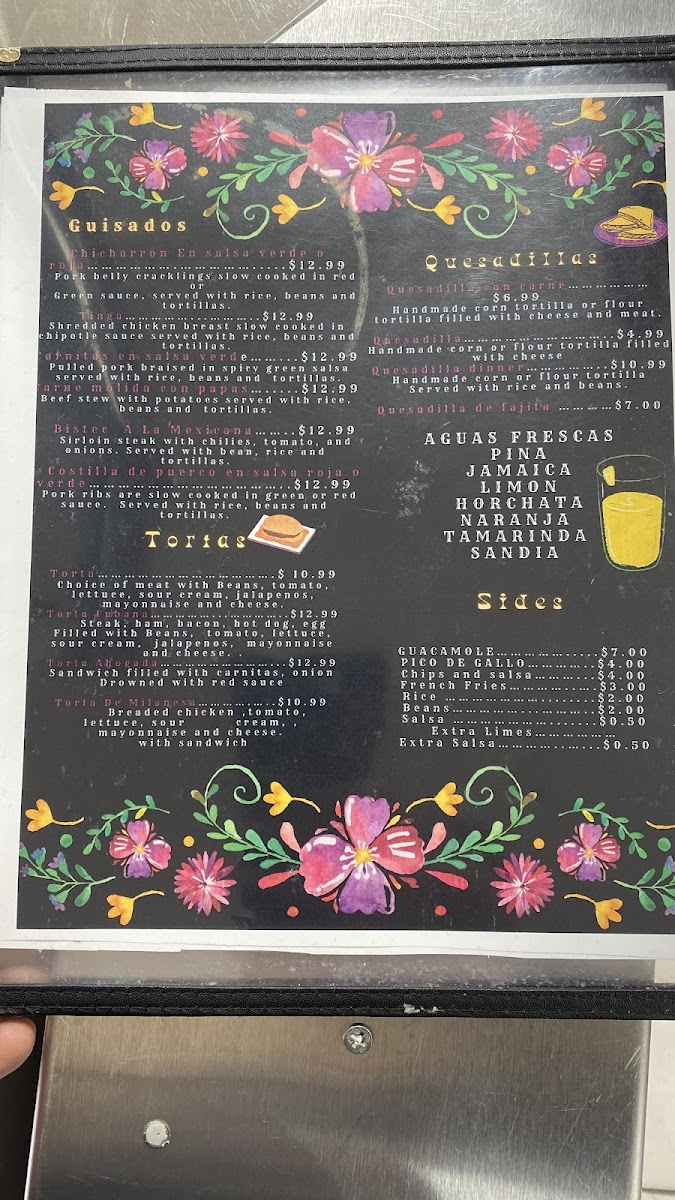 Guisados
Chicharron En salsa verde o
roja..............................$12.99
Pork belly cracklings slow cooked in red
or
Green sauce, served with rice, beans and
tortillas.
Tinga..............................$12.99
Shredded chicken breast slow cooked in
chipotle sauce served with rice, beans and
tortillas.
Carnitas en salsa verde.........$12.99
Pulled pork braised in spicy green salsa
served with rice, beans and tortillas.
Carne molida con papas.........$12.99
Beef stew with potatoes served with rice,
beans and tortillas.
Bistec A La Mexicana.........$12.99
Sirloin steak with chilies, tomato, and
onions. Served with bean, rice and
tortillas.
Costilla de puerco en salsa roja o
verde..............................$12.99
Pork ribs are slow cooked in green or red
sauce. Served with rice, beans and
tortillas.
Tortas
Torta..............................$ 10.99
Choice of meat with Beans, tomato,
lettuce, sour cream, jalapenos,
mayonnaise and cheese.
Torta Cubana.....................$12.99
Steak, ham, bacon, hot dog, egg
Filled with Beans, tomato, lettuce,
sour cream, jalapenos, mayonnaise
and cheese. .
Torta Ahogada.....................$12.99
Sandwich filled with carnitas, onion
Drowned with red sauce
Torta De Milanesa...............$10.99
Breaded chicken ,tomato,
lettuce, sour cream,
mayonnaise and cheese.
with sandwich
Quesadillas
Quesadilla con carne...............
$6.99
Handmade corn tortilla or flour
tortilla filled with cheese and meat.
Quesadilla........................$4.99
Handmade corn or flour tortilla filled
with cheese
Quesadilla dinner...............$10.99
Handmade corn or flour tortilla
Served with rice and beans.
Quesadilla de fajita .........$7.00
AGUAS FRESCAS
PINA
JAMAICA
LIMON
HORCHATA
NARANJA
TAMARINDA
SANDIA
Sides
GUACAMOLE..................$7.00
PICO DE GALLO............$4.00
Chips and salsa............$4.00
French Fries...............$3.00
Rice ........................$2.00
Beans........................$2.00
Salsa .....................$0.50
Extra Limes...............
Extra Salsa...............$0.50